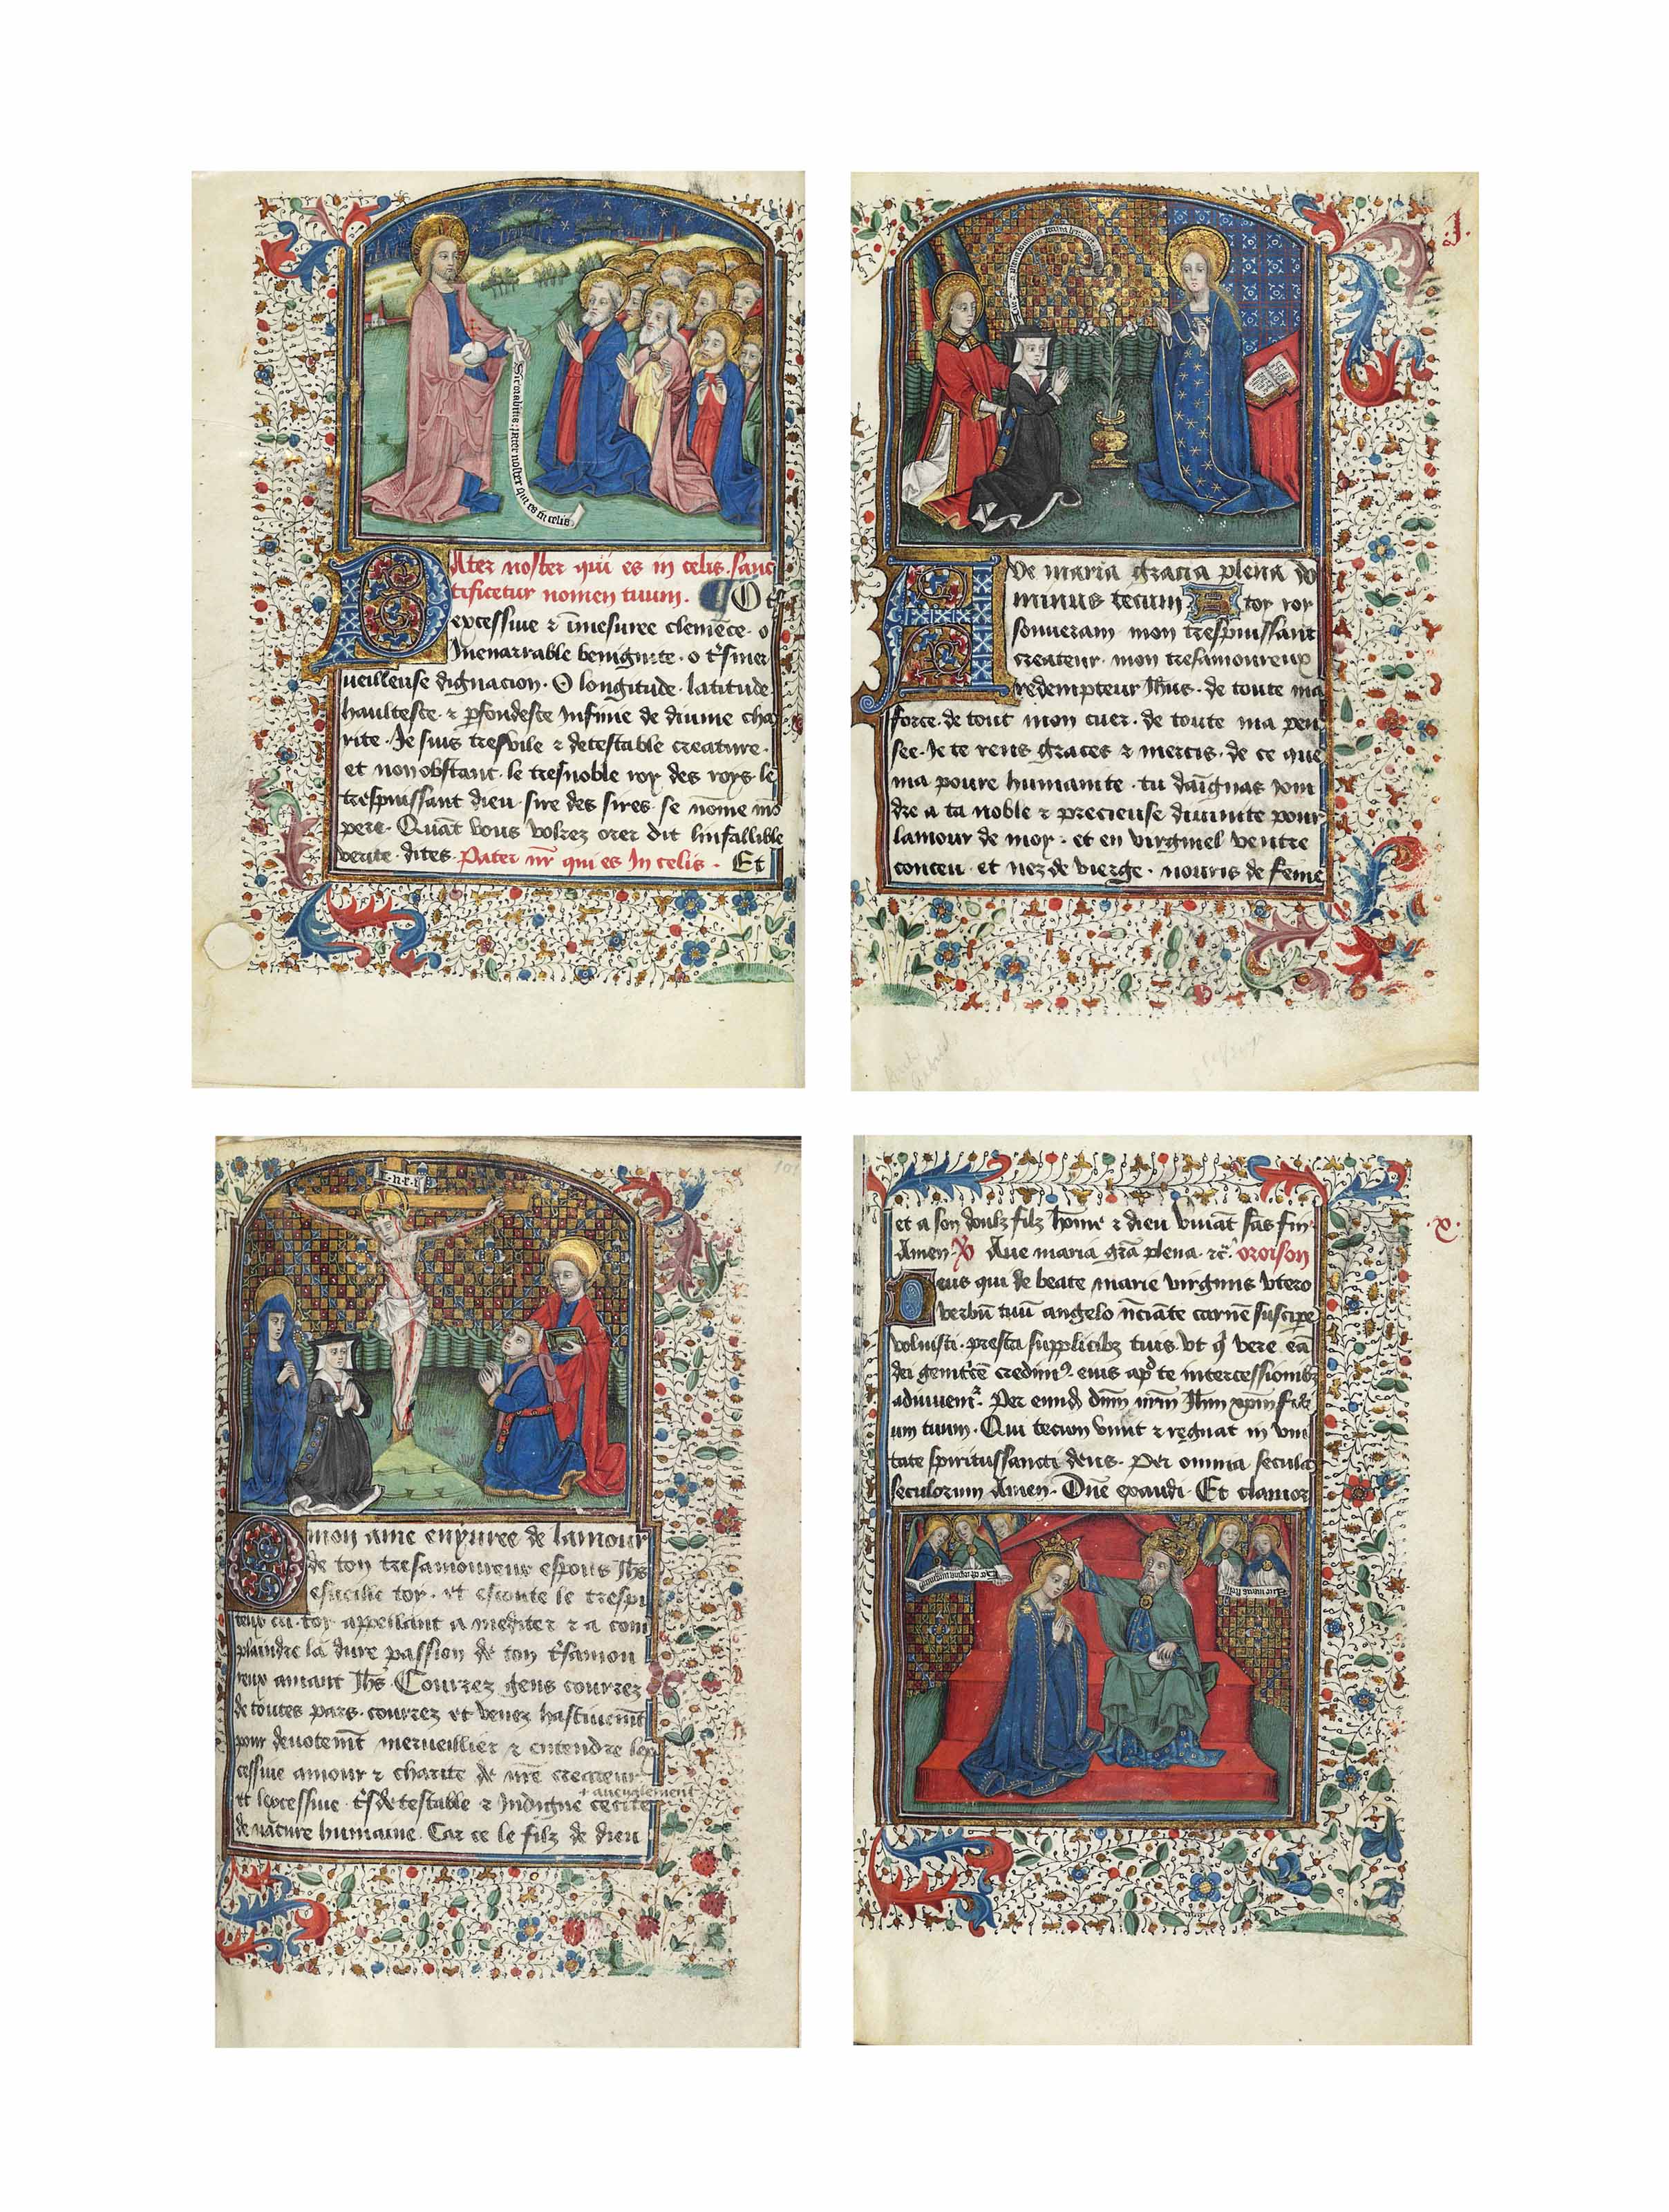 Sic orabitis: pater noster qui es in celis
Pater noster qui es in celis. sanc
tificetur nomen tuum. O
excessiue ⁊ īmesuree clemēce. o
Inenarrable benignite. o
ueilleuse dignacion. O longitude. latitude.
haultesse. ⁊ pfondesse Infinie de diuine cha
rite. Je suis tresvile ⁊ detestable creature.
et nonobstant. le tresnoble roy des roys. le
trespuissant dieu. sire des sires. se nōme mō
pere. Quāt vous volrez orer dit linfallible
verite. dites. Pater nr̄ qui es In celis. Et
J.
Aue maria gracia plena do
minus tecum. A toy roy
souuerain. mon trespuissant
createur. mon tresamoureux
redempteur Jh̄us. de toute ma
force. de tout mon cuer. de toute ma pen
see. Je te rens graces ⁊ mercis. de ce que
ma poure humanite. tu daīgnas ioin
dre a ta noble ⁊ precieuse diuinite pour
lamour de moy. et en virginel ventre
conceu. et nez de vierge. nouris de fēme
101
I.n.r.i
O mon ame enyuree de lamour
de ton tresamoureux espous Jh̄s
esueille toy. et escoute le
appellant a mediter ⁊ a com
plaindre la dure passion de ton
reux amant Jh̄s. Courrez gens courrez
de toutes pars. courrez et venez hastiuemt̄
pour deuotemt̄ merueillier ⁊ entendre lex
cessiue amour ⁊ charite de nr̄e createur
+ aueuglement
et lexcessiue detestable ⁊ Indigne cecite
de nature humaine. Car ce le filz de dieu
x.
et a son doulz filz hōme ⁊ dieu viuāt sās fin
Amen. Aue maria grā plena. ⁊c̄. oroison
Deus qui de beate marie virginis vtero
verbū tuū angelo nc̄iāte carnē suscipe
voluisti. presta supplicibz tuis. vt q̄ vere eā
dei genitcē credim⁹. eius apd̄ te intercessionibz
adiuuem̄. Per eund dn̄m nr̄m Jh̄m xp̄m fili
um tuum. Qui tecum viuit ⁊ regnat in vni
tate spiritussancti deus. Per omnia secula
seculorum Amen. Dn̄e exaudi. Et clamor